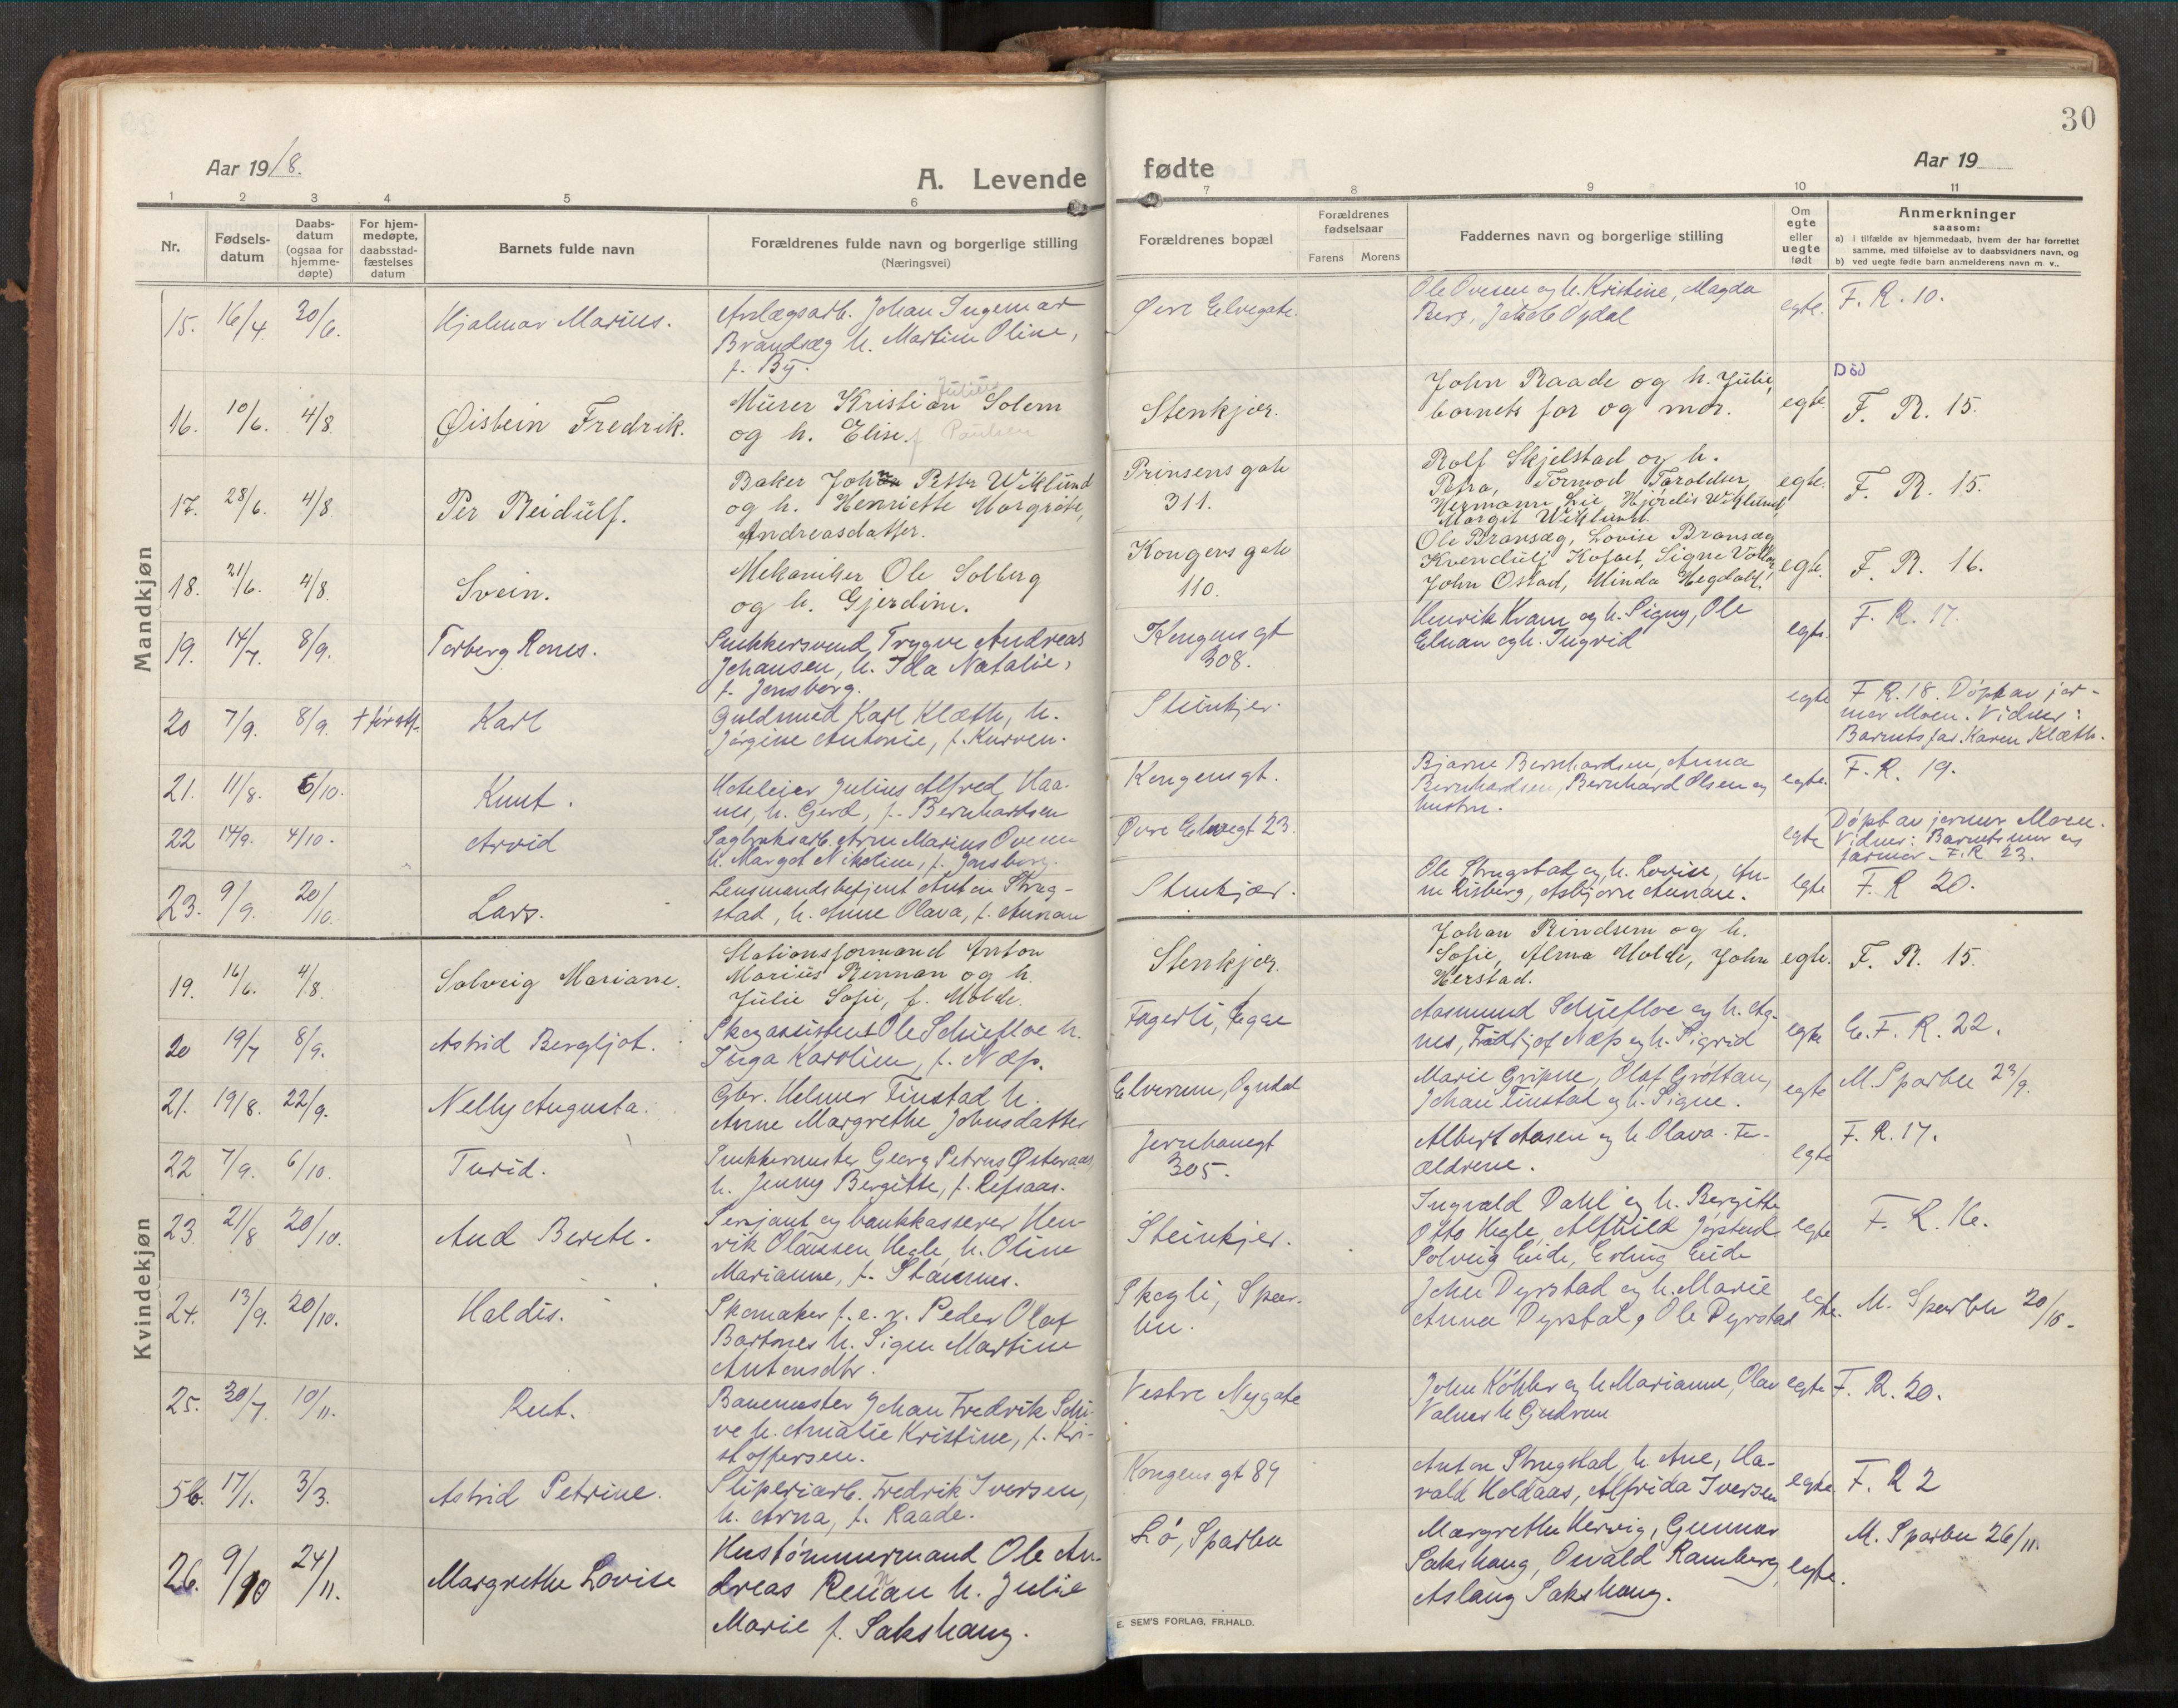 30
Aar 1918.
A. Levende fødte
Aar 19
1 2 3 4 5 6 7 8 9 10 11
Nr.
Fødsels-
datum
Daabs-
datum
(ogsaa for
hjemme-
døpte)
For hjem-
medøpte,
daabsstad-
fæstelses
datum
Barnets fulde navn
Forældrenes fulde navn og borgerlige stilling
(Næringsvei)
Forældrenes bopæl
Forældrenes
fødselsaar
Farens Morens
Faddernes navn og borgerlige stilling
Om
egte
eller
uegte
født
Anmerkninger
saasom:
a) i tilfælde av hjemmedaab, hvem der har forrettet
samme, med tilføielse av to daabsvidners navn, og
b) ved uegte fødte barn anmelderens navn m. v..
Mandkjøn
15. 16/4. 20/6. Hjalmar Marius.
Anlægsarb. Johan Ingemar
Brandsæg h. Martine Oline,
f. By.
Øvre Elvegate.
Ole Ovesen og h. Kristine, Magda
Berg, Jakob Ogdal
egte. F. R. 10.
16. 10/6. 4/8 Øistein Fredrik.
Murer Kristian Julius Solem
og h. Elise f Paulsen
Stenkjær.
John Raade og h. Julie,
barnets far og mor.
egte.
Død
F. R. 15.
17. 28/6. 4/8 Per Reidulf.
Baker Johan Petter Wiklund
og h. Henriette Margrete,
Andreasdatter.
Prinsens gate
311.
Rolf Skjelstad og h.
Petra, Tormod Taraldsen,
Hermann Lie, Hjørdis Wiklund,
Margit Wiklund.
egte. F. R. 15.
18. 21/6. 4/8. Svein.
Mekaniker Ole Solberg
og h. Gjerdine.
Kongens gate
110.
Ole Bransæg, Lovise Bransæg
Kvendulf Kofaet, Signe
John Ostad, Minda Hegdahl.
egte. F. R. 16.
19. 14/7. 8/9. Torberg Rones.
Snekkersvend Trygve Andreas
Johansen, h. Ida Natalie,
f. Jønsberg.
Kongens gt
308.
Henrik Kvam og h. Signy, Ole
Elnan og h. Ingrid
egte. F. R. 17.
20 7/9. 8/9. + før stf. Karl
Guldsmed Karl Klæth, h.
Jørgine Antonie, f. Kurven.
Steinkjer.
egte F R. 18. Døpt av jor-
mor Moen. Vidner:
Barnets far. Karen Klæth.
21. 11/8. 6/10. Knut.
Hoteleier Julius Alfred Haa-
nes, h. Gerd, f. Bernhardsen
Kongensgt.
Bjarne Bernhardsen, Anna
Bernhardsen, Bernhard Olsen og
hustru.
egte. F. R. 19.
22 14/9. 4/10. Arvid
Sagbruksarb. Arne Marius Ovesen
h. Margot Nikoline, f. Jønsberg.
Øvre Elvegt 23.
egte Døpt av jormor Moen.
Vidner: Barnets mor og
farmor - F. R 23.
23. 9/9. 20/10. Lars.
Lensmandsbetjent Anton Strug-
stad, h. Anne Olava, f. Aunan
Stenkjær.
Ole Strugstad og h. Lovise, An-
na Risberg, Asbjørn Aunan.
egte F. R 20.
Kvindekjøn
19. 16/6. 4/8. Solveig Marianne.
Stationsformand Anton
Marius Rinnan og h.
Julie Sofie, f. Molde.
Stenkjær.
Johan Rindsem og h.
Sofie, Alma Molde, John
Herstad.
egte. F. R. 15.
20 19/7 8/9. Astrid Bergljot.
Skogassistent Ole Schiefloe h.
Inga Karoline, f. Næss.
Fagerli, Egge
Aasmund Schiefloe og h. Ag-
nes, Fridtjof Næss og h. Sigrid
egte E. F. R. 22.
21. 19/8. 22/9. Nelly Augusta.
Gbr. Helmer Finstad h.
Anne Margrethe Johnsdatter
Elverum, Ogndal
Marie Gripne, Olaf Grøttan,
Johan Finstad og h. Signe.
egte M. Sparbu 23/9.
22 7/9. 6/10. Turid.
Snekkermester Georg Petrus Østeraas,
h. Jenny Bergitte, f. Refsaas.
Jernbanegt
305.
Albert Aasen og h Olava. For-
ældrene.
egte F. R. 17.
23. 21/8 20/10. Aud Berete.
Sersjant og bankkasserer Hen-
rik Olaussen Hegle, h. Oline
Marianne, f. Stamnes.
Steinkjer.
Ingvald Dahl og h. Bergitte
Otto Hegle, Alfhild Jystad
Solveig Eide, Erling Eide
egte F. R. 16.
24. 13/9. 20/10. Haldis.
Skomaker f. e. r. Peder Olaf
Bartnes h. Signe Martine
Antonsdtr.
Skogli, Spar-
bu.
John Dyrstad og h. Marie
Anna Dyrstad, Ole Dyrstad
egte. M. Sparbu 20/10.
25. 30/7. 10/11. Rut.
Banemester Johan Fredrik Schi-
ve h. Amalie Kristine, f. Kri-
stoffersen.
Vestre Nygate
John Köhler og h Marianne, Olav
Valnes h Gjudrun
egte F. R. 20.
5b. 17/1. 3/3. Astrid Petrine.
Sliperiarb. Fredrik Iversen,
h. Arna, f. Raade.
Kongens gt 89
Anton Strugstad h. Ane, Ha-
rald Heldaas, Alfrida Iversen
egte F. R 2
26. 9/10 24/11. Margrethe Lovise
Hustømmermand Ole An-
dreas Rennan h. Julie
Marie f. Sakshaug.
Lø, Sparbu
Margrethe Hervig, Gunnar
Sakshaug, Osvald Ramberg,
Aslaug Sakshaug.
egte. M. Sparbu 26/11.
E. SEM'S FORLAG, FR.HALD.